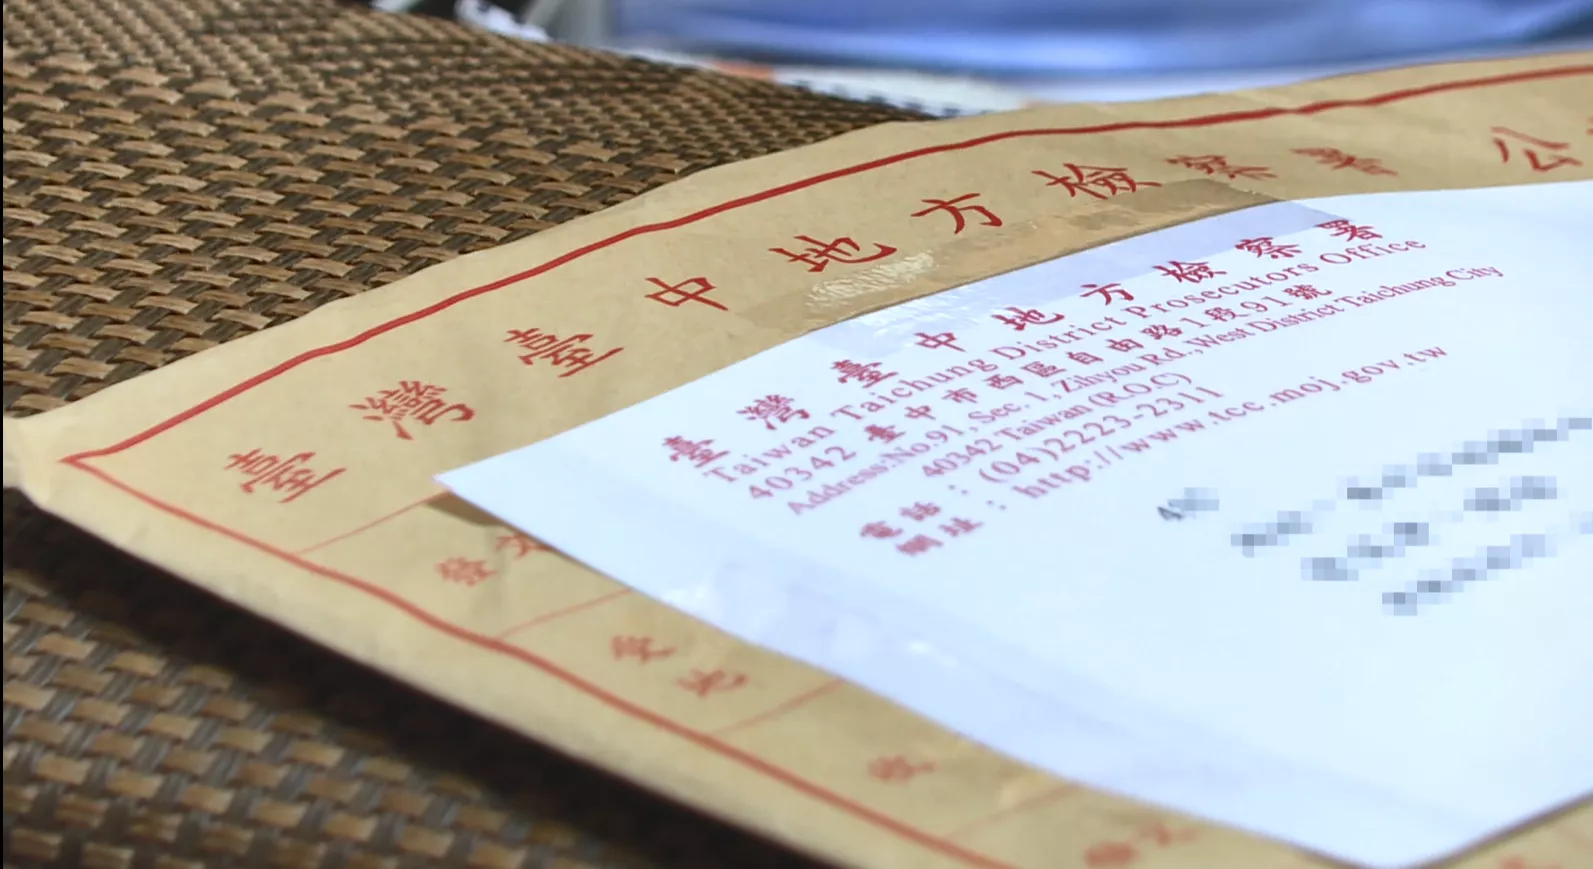 臺灣臺中地方檢察署 公
臺灣臺中地方檢察署
Taiwan Taichung District Prosecutors Office
40342 臺中市西區自由路1段91號
Address:No.91, Sec. 1, Zihyou Rd., West District Taichung City
40342 Taiwan (R.O.C)
電話：(04)2223-2311
網址：http://www.tcc.moj.gov.tw
發文
受
地